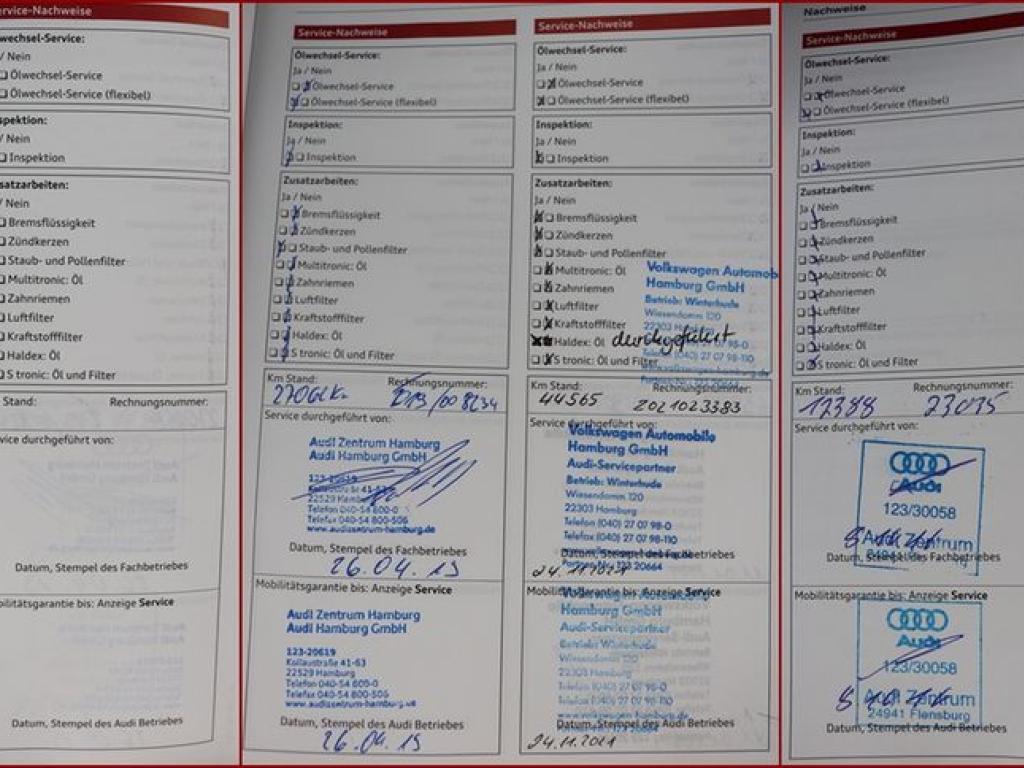 Service-Nachweise
wechsel-Service:
/ Nein
Ölwechsel-Service
Ölwechsel-Service (flexibel)
spektion:
/ Nein
Inspektion
satzarbeiten:
/ Nein
Bremsflüssigkeit
Zündkerzen
Staub- und Pollenfilter
Multitronic: Öl
Zahnriemen
Luftfilter
Kraftstofffilter
Haldex: Öl
S tronic: Öl und Filter
Stand: Rechnungsnummer:
vice durchgeführt von:
Datum, Stempel des Fachbetriebes
bilitätsgarantie bis: Anzeige Service
Datum, Stempel des Audi Betriebes
Service-Nachweise
Ölwechsel-Service:
Ja / Nein
Ölwechsel-Service
Ölwechsel-Service (flexibel)
Inspektion:
Ja / Nein
Inspektion
Zusatzarbeiten:
Ja / Nein
Bremsflüssigkeit
Zündkerzen
Staub- und Pollenfilter
Multitronic: Öl
Zahnriemen
Luftfilter
Kraftstofffilter
Haldex: Öl
S tronic: Öl und Filter
Km Stand: Rechnungsnummer:
Service durchgeführt von:
Audi Zentrum Hamburg
Audi Hamburg GmbH
123-20619
Kollaustraße 41-63
22529 Hamburg
Telefon 040-54 800-0
Telefax 040-54 800-506
www.audizentrum-hamburg.de
Datum, Stempel des Fachbetriebes
26.04.19
Mobilitätsgarantie bis: Anzeige Service
Audi Zentrum Hamburg
Audi Hamburg GmbH
123-20619
Kollaustraße 41-63
22529 Hamburg
Telefon 040-54 800-0
Telefax 040-54 800-506
www.audizentrum-hamburg.de
Datum, Stempel des Audi Betriebes
26.04.19
Service-Nachweise
Ölwechsel-Service:
Ja / Nein
Ölwechsel-Service
Ölwechsel-Service (flexibel)
Inspektion:
Ja / Nein
Inspektion
Zusatzarbeiten:
Ja / Nein
Bremsflüssigkeit
Zündkerzen
Staub- und Pollenfilter
Multitronic: Öl
Zahnriemen
Luftfilter
Kraftstofffilter
Haldex: Öl durchgeführt
S tronic: Öl und Filter
Volkswagen Automob
Hamburg GmbH
Betrieb: Winterhude
Wiesendamm 120
22303 Hamburg
Km Stand: Rechnungsnummer:
44565 2021023383
Service durchgeführt von:
Volkswagen Automobile
Hamburg GmbH
Audi-Servicepartner
Betrieb: Winterhude
Wiesendamm 120
22303 Hamburg
Telefon (040) 27 07 98-0
Telefax (040) 27 07 98-110
Datum, Stempel des Fachbetriebes
24.11.2021
Mobilitätsgarantie bis: Anzeige Service
Volkswagen Automobile
Hamburg GmbH
Audi-Servicepartner
Betrieb: Winterhude
Wiesendamm 120
22303 Hamburg
Telefon (040) 27 07 98-0
Telefax (040) 27 07 98-110
www.volkswagen-hamburg.de
Datum, Stempel des Audi Betriebes
24.11.2021
Nachweise
Service-Nachweise
Ölwechsel-Service:
Ja / Nein
Ölwechsel-Service
Ölwechsel-Service (flexibel)
Inspektion:
Ja / Nein
Inspektion
Zusatzarbeiten:
Ja / Nein
Bremsflüssigkeit
Zündkerzen
Staub- und Pollenfilter
Multitronic: Öl
Zahnriemen
Luftfilter
Kraftstofffilter
Haldex: Öl
S tronic: Öl und Filter
Km Stand: Rechnungsnummer:
17388 23075
Service durchgeführt von:
Audi
123/30058
Audi Zentrum
Datum, Stempel des Fachbetriebes
Mobilitätsgarantie bis: Anzeige Service
Audi
123/30058
Audi Zentrum
24941 Flensburg
Datum, Stempel des Audi Betriebes